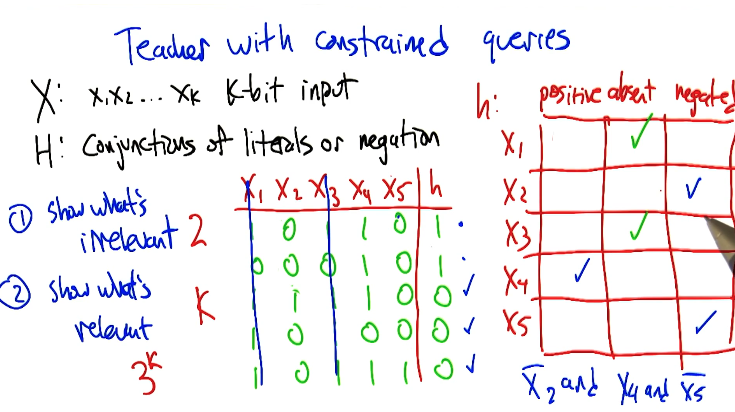 Teacher with constrained queries
X: x₁x₂... xₖ k-bit input
H: Conjunctions of literals or negation
① show what's irrelevant 2
② show what's relevant K
3ᵏ
X₁ X₂ X₃ X₄ X₅ h
1 0 1 1 0 1 .
0 0 0 1 0 1 .
1 1 1 1 0 0 ✓
1 0 1 0 0 0 ✓
1 0 1 1 1 0 ✓
h: positive absent negated
X₁ ✓
X₂ ✓
X₃ ✓
X₄ ✓
X₅ ✓
X̅₂ and X₄ and X̅₅